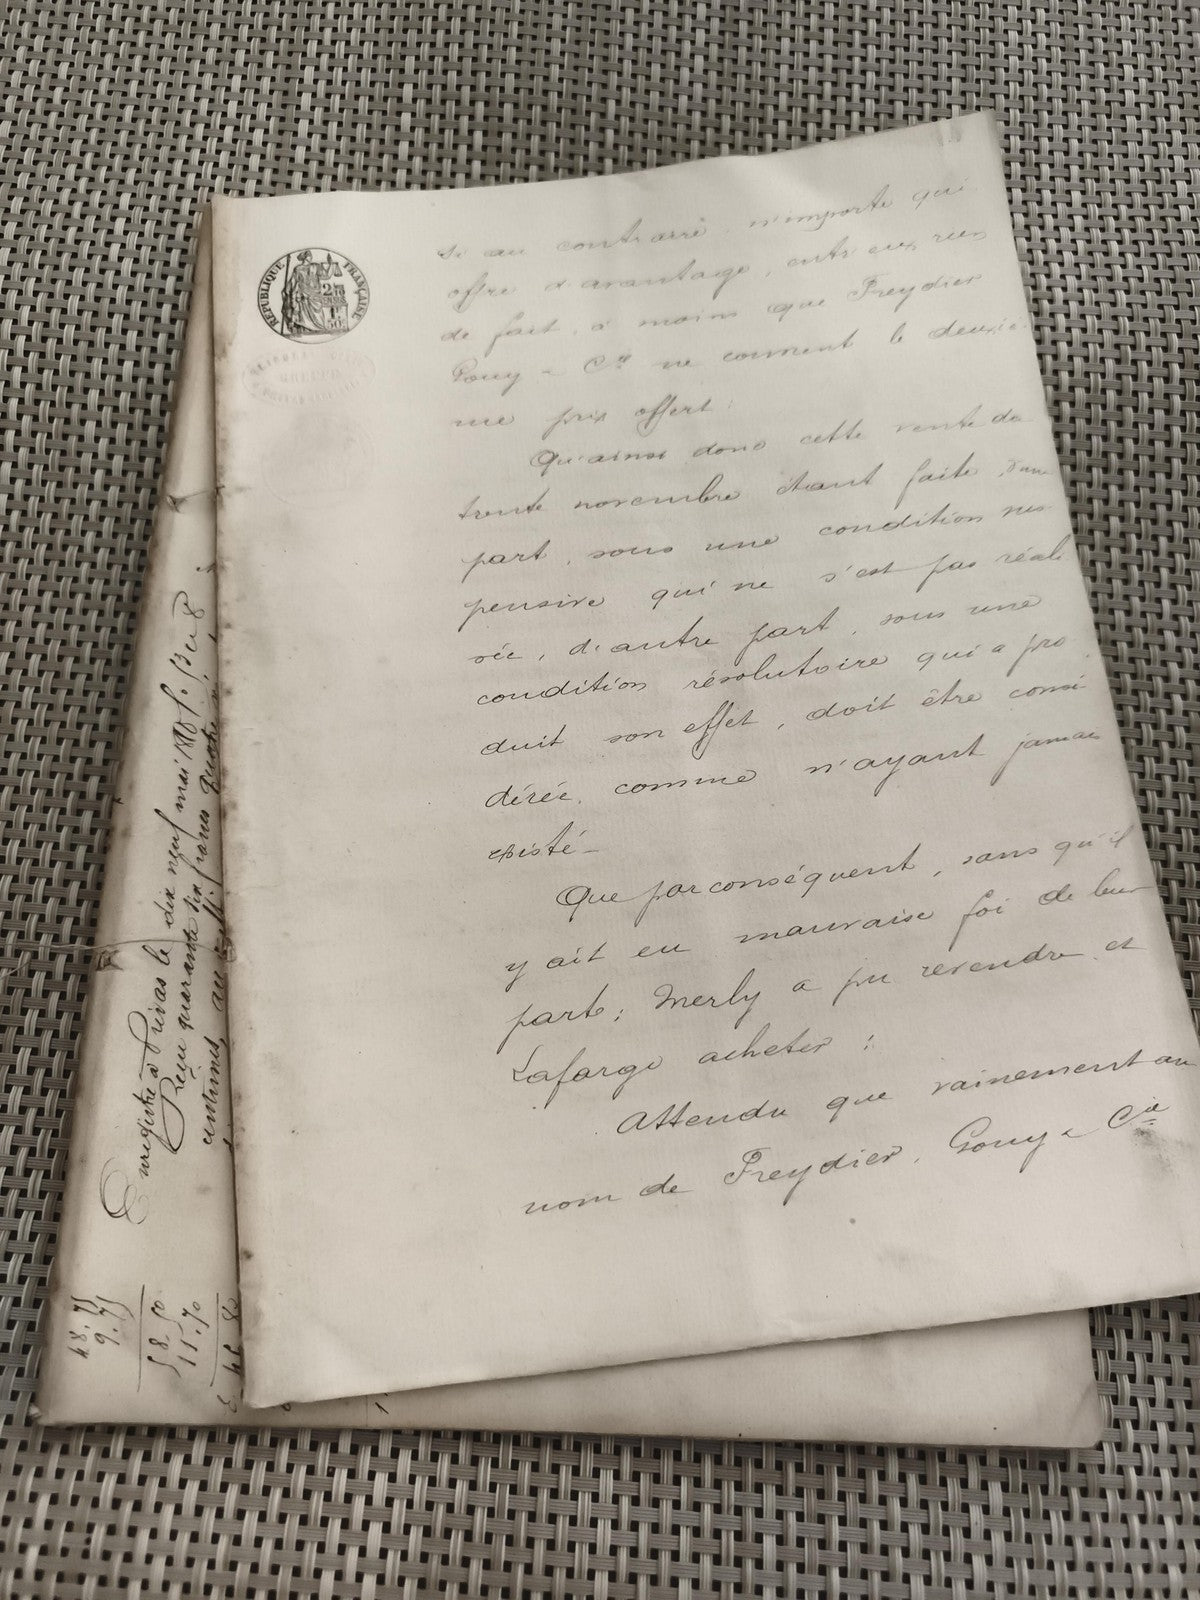 RÉPUBLIQUE FRANÇAISE
Si au contrarre n'importe qui
offre d'avantage, entr'eux rien
de fait, à moins que Freydier
Gouy & Cie ne couvrent le deuxiè
me prix offert:
Qu'ainsi donc cette vente du
trente novembre étant faite d'une
part, sous une condition sus
pensive qui ne s'est pas réali
sée, d'autre part, sous une
condition résolutoire qui a pro
duit son effet, doit être consi
dérée, comme n'ayant jamais
existé-
Que par conséquent, sans qu'il
y ait eu mauvaise foi de leur
part; Merly a pu revendre et
Lafarge acheter:
Attendu que vainement au
nom de Freydier, Gouy & Cie
Enregistré à Privas le dix neuf mai
Reçu quarante six francs quatre
centimes
48.75
9.75
58.50
11.70